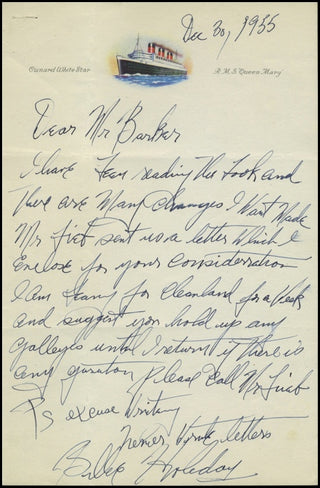 Dec 30, 1955
Cunard White Star
R.M.S "Queen Mary"
Dear Mr Barker
I have been reading the book and
there are many changes I want made
Mr first sent us a letter which I
Enclose for your consideration
I am leaving for Cleveland for a week
and suggest you hold up any
galleyes until I return if there is
any question please call Mr
Ps excuse writing
never write letters
Billie Holiday